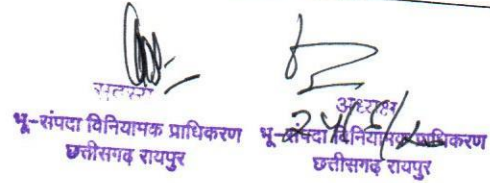 सदस्य
भू-संपदा विनियामक प्राधिकरण
छत्तीसगढ़ रायपुर
अध्यक्ष
भू-संपदा विनियामक प्राधिकरण
छत्तीसगढ़ रायपुर